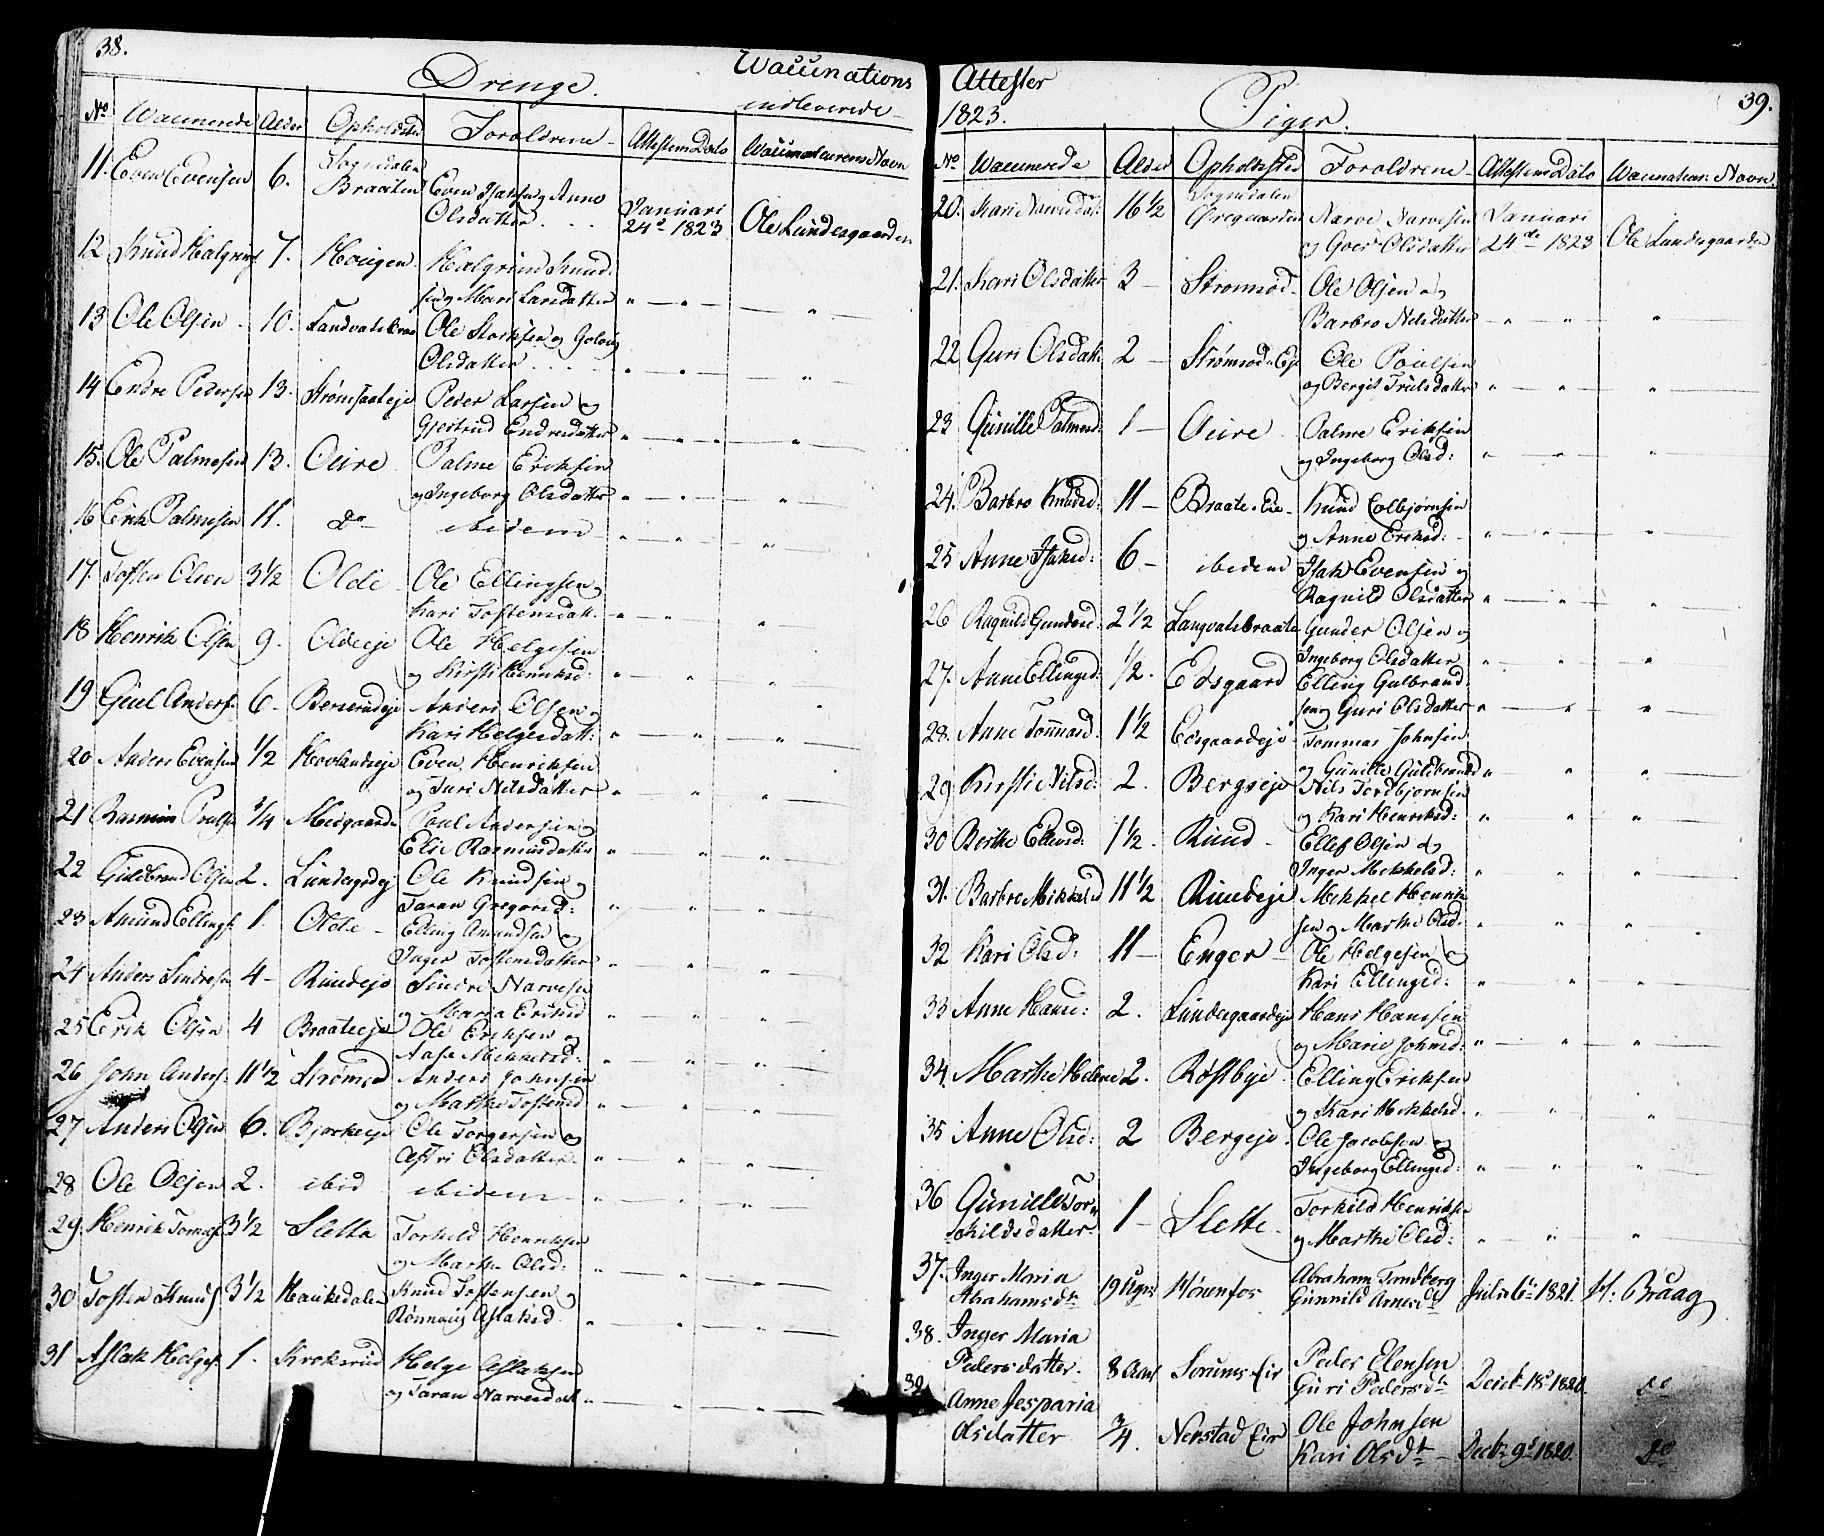 38.
Drenge.
Waccinations
indleverede
No Waccinerede Alder Opholdsted Forældrene Attestens Dato Waccinateurens Navn
11. Even Evensen 6. Sogndalen Braaten Even Isaksen og Anne
Olsdatter Januari 24de 1823 Ole Lundesgaarden
12 Knud Halgrims 7. Hougen Halgrim Knud-
sen og Mari Larsdatter " — " — "
13 Ole Olsen 10. Landvalsbraa Ole Olsen og Goloug
Olsdatter " — " — "
14 Endre Pedersen 13. Strømsaateje Peder Larsen og
Gjertrud Endresdatter " — " — "
15. Ole Palmesen 13. Oure Palme Eriksen
og Ingeborg Olsdatter " — " — "
16 Erik Palmesen 11. Do ibidem " — " — "
17. Tosten Olsen 3 1/2 Olde Ole Ellingsen og
Kari Tostensdatt. " — " — "
18 Henrik Olsen 9. Oldeeje Ole Helgesen
og Kirsti Henriksd. " — " — "
19 Guul Anders. 6 - Anders Olsen og
Kari Helgesdatt: " — " — "
20 Anders Evensen 1/2 Hovlandseje Even Henriksen
og Turi Nilsdatter " — " — "
21 Rasmus Poulse 3/4 Moegaarde Poul Andersen og
Elie Rasmusdatter " — " — "
22 Guldbrand Olsen 2. Lundesgdej Ole Knudsen og
Taran Gregorsd: " — " — "
23 Amund Ellings. 1. Olde - Elling Amundsen og
Inger Tostensdatter " — " — "
24 Anders Sindresen 4 - Ruudeje Sindre Narvesen
og Maria Eriksd " — " — "
25 Erik Olsen 4 Braateeje Ole Eriksen og
Aase Mikkelsd: " — " — "
26 John Anders. 11 1/2 Strømsod Anders Johnsen
og Marthe Tostensd " — " — "
27 Anders Olsen 6. Bjorkeeje Ole Torgersen og
Astri Olsdatter. " — " — "
28 Ole Olsen 2. ibid ibidem " — " — "
29. Henrik 3 1/2 Sletta Torkild Henriksen
og Marthe Olsd: " — " — "
30 Tosten Knuds 3 1/2 Haukedalen Knud Tostensen og
Rønnaug Aslaksd. " — " — "
31 Aslak Helges. 1. Krokerud Helge Aslaksen
og Taran Narvesdat " — " — "
Attester
1823.
Piger.
39.
No Waccinerede Alder Opholdsted Forældrene Attestens Dato Waccinateur: Navn.
20. Kari Narvesdat. 16 1/2 Sogndalen Øvregaarden Narve Narvesen
og Goer Olsdatter Januari 24de 1823 Ole Lundesgaarden
21. Kari Olsdatter 3 — Strømsod Ole Olsen og
Barbro Nilsdatter " — " — "
22 Guri Olsdatt. 2 — Strømsod-Eje Ole Poulsen
og Bergit Trulsdatter " — " — "
23 Gunille Palmesd: 1 — Oure Palme Eriksen
og Ingeborg Olsd: " — " — "
24. Barbro Knudsd: 11 — Braate-Eie Knud Colbjørnsen
og Anne Eriksd: " — " — "
25 Anne Isaksd: 6 — ibidem Isak Evensen og
Ragnild Olsdatter " — " — "
26 Ragnild Gundersd: 2 1/2 Langvalsbraate Gunder Olsen og
Ingeborg Olsdatter " — " — "
27. Anne Ellingsd: 1/2. Edsgaard Elling Gulbrand-
sen og Guri Olsdatter " — " — "
28. Anne Tommasd. 1 1/2 Edsgaardeje Tommas Johnsen
og Gunille Guldbrandsd " — " — "
29 Kirsti Nilsd: 2. Bergseje Nils Tordbjornsen
og Kari Henriksd: " — " — "
30 Berthe Ellevsd: 1 1/2. Ruud Ellef Olsen og
Inger Mikkelsd: " — " — "
31. Barbro Mikkelsd 11 1/2 Ruudeje Mikkel Henrik-
sen og Marthe Olsd: " — " — "
32 Kari Olsd: 11 — Enger Ole Helgesen og
Kari Ellingsd: " — " — "
33 Anne Hansd: 2. Lundesgaardeje Hans Hansen
og Marie Johnsd: " — " — "
34. Marthe Helene 2. Røstbye Elling Eriksen
og Kari Mikkelsd. " — " — "
35 Anne Olsd: 2 Bergeje Ole Jacobsen og
Ingeborg Ellingsd: " — " — "
36 Gunille Tor-
kildsdatter 1 — Slette Torkild Henriksen
og Marthe Olsd: " — " — "
37. Inger Maria
Abrahamsdtr 19 Ugr Hønenfos Abraham Tandberg
Gunnild Arnesdtr Julii 6te 1821. H. Braag
38. Inger Maria
Pedersdatter. 8 Aar Sorums-Eir Peder Elensen
Guri Pedersdtr Decbr 18de 1820. do
39 Anne Jesparia
Olsdatter 3/4. Nerstad Eir Ole Johnsen
Kari Olsdtr Decbr 9de 1820. do